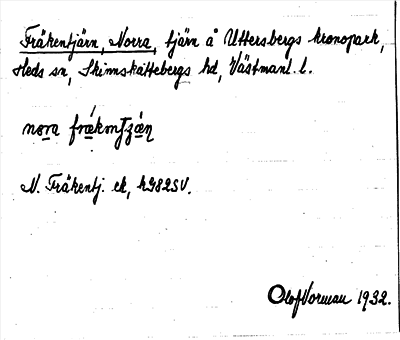 Fräkentjärn, Norra, tjärn å Uttersbergs kronopark,
Heds sn, Skinnskattebergs hd, Västmanl. l.
N. Fräkentj. ek, h982SV.
Olof Vorman 1932.